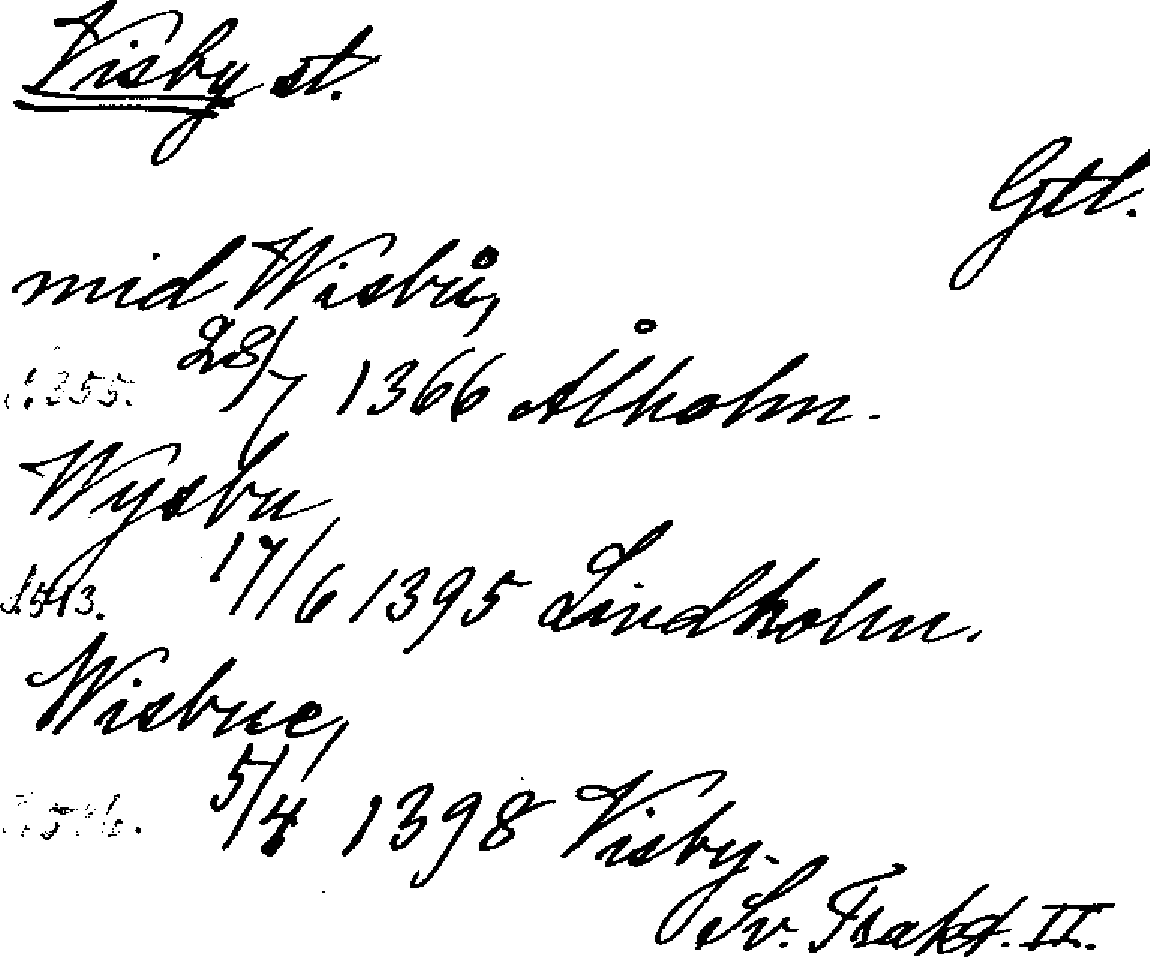 Visby st.
Gtl.
mid Wisbů,
s. 355. 28/7 1366 Ålholm.
Wysbu
s. 513. 17/6 1395 Lindholm.
Wisbue,
5/4 1398 Visby.
Sv. Trakt. II.